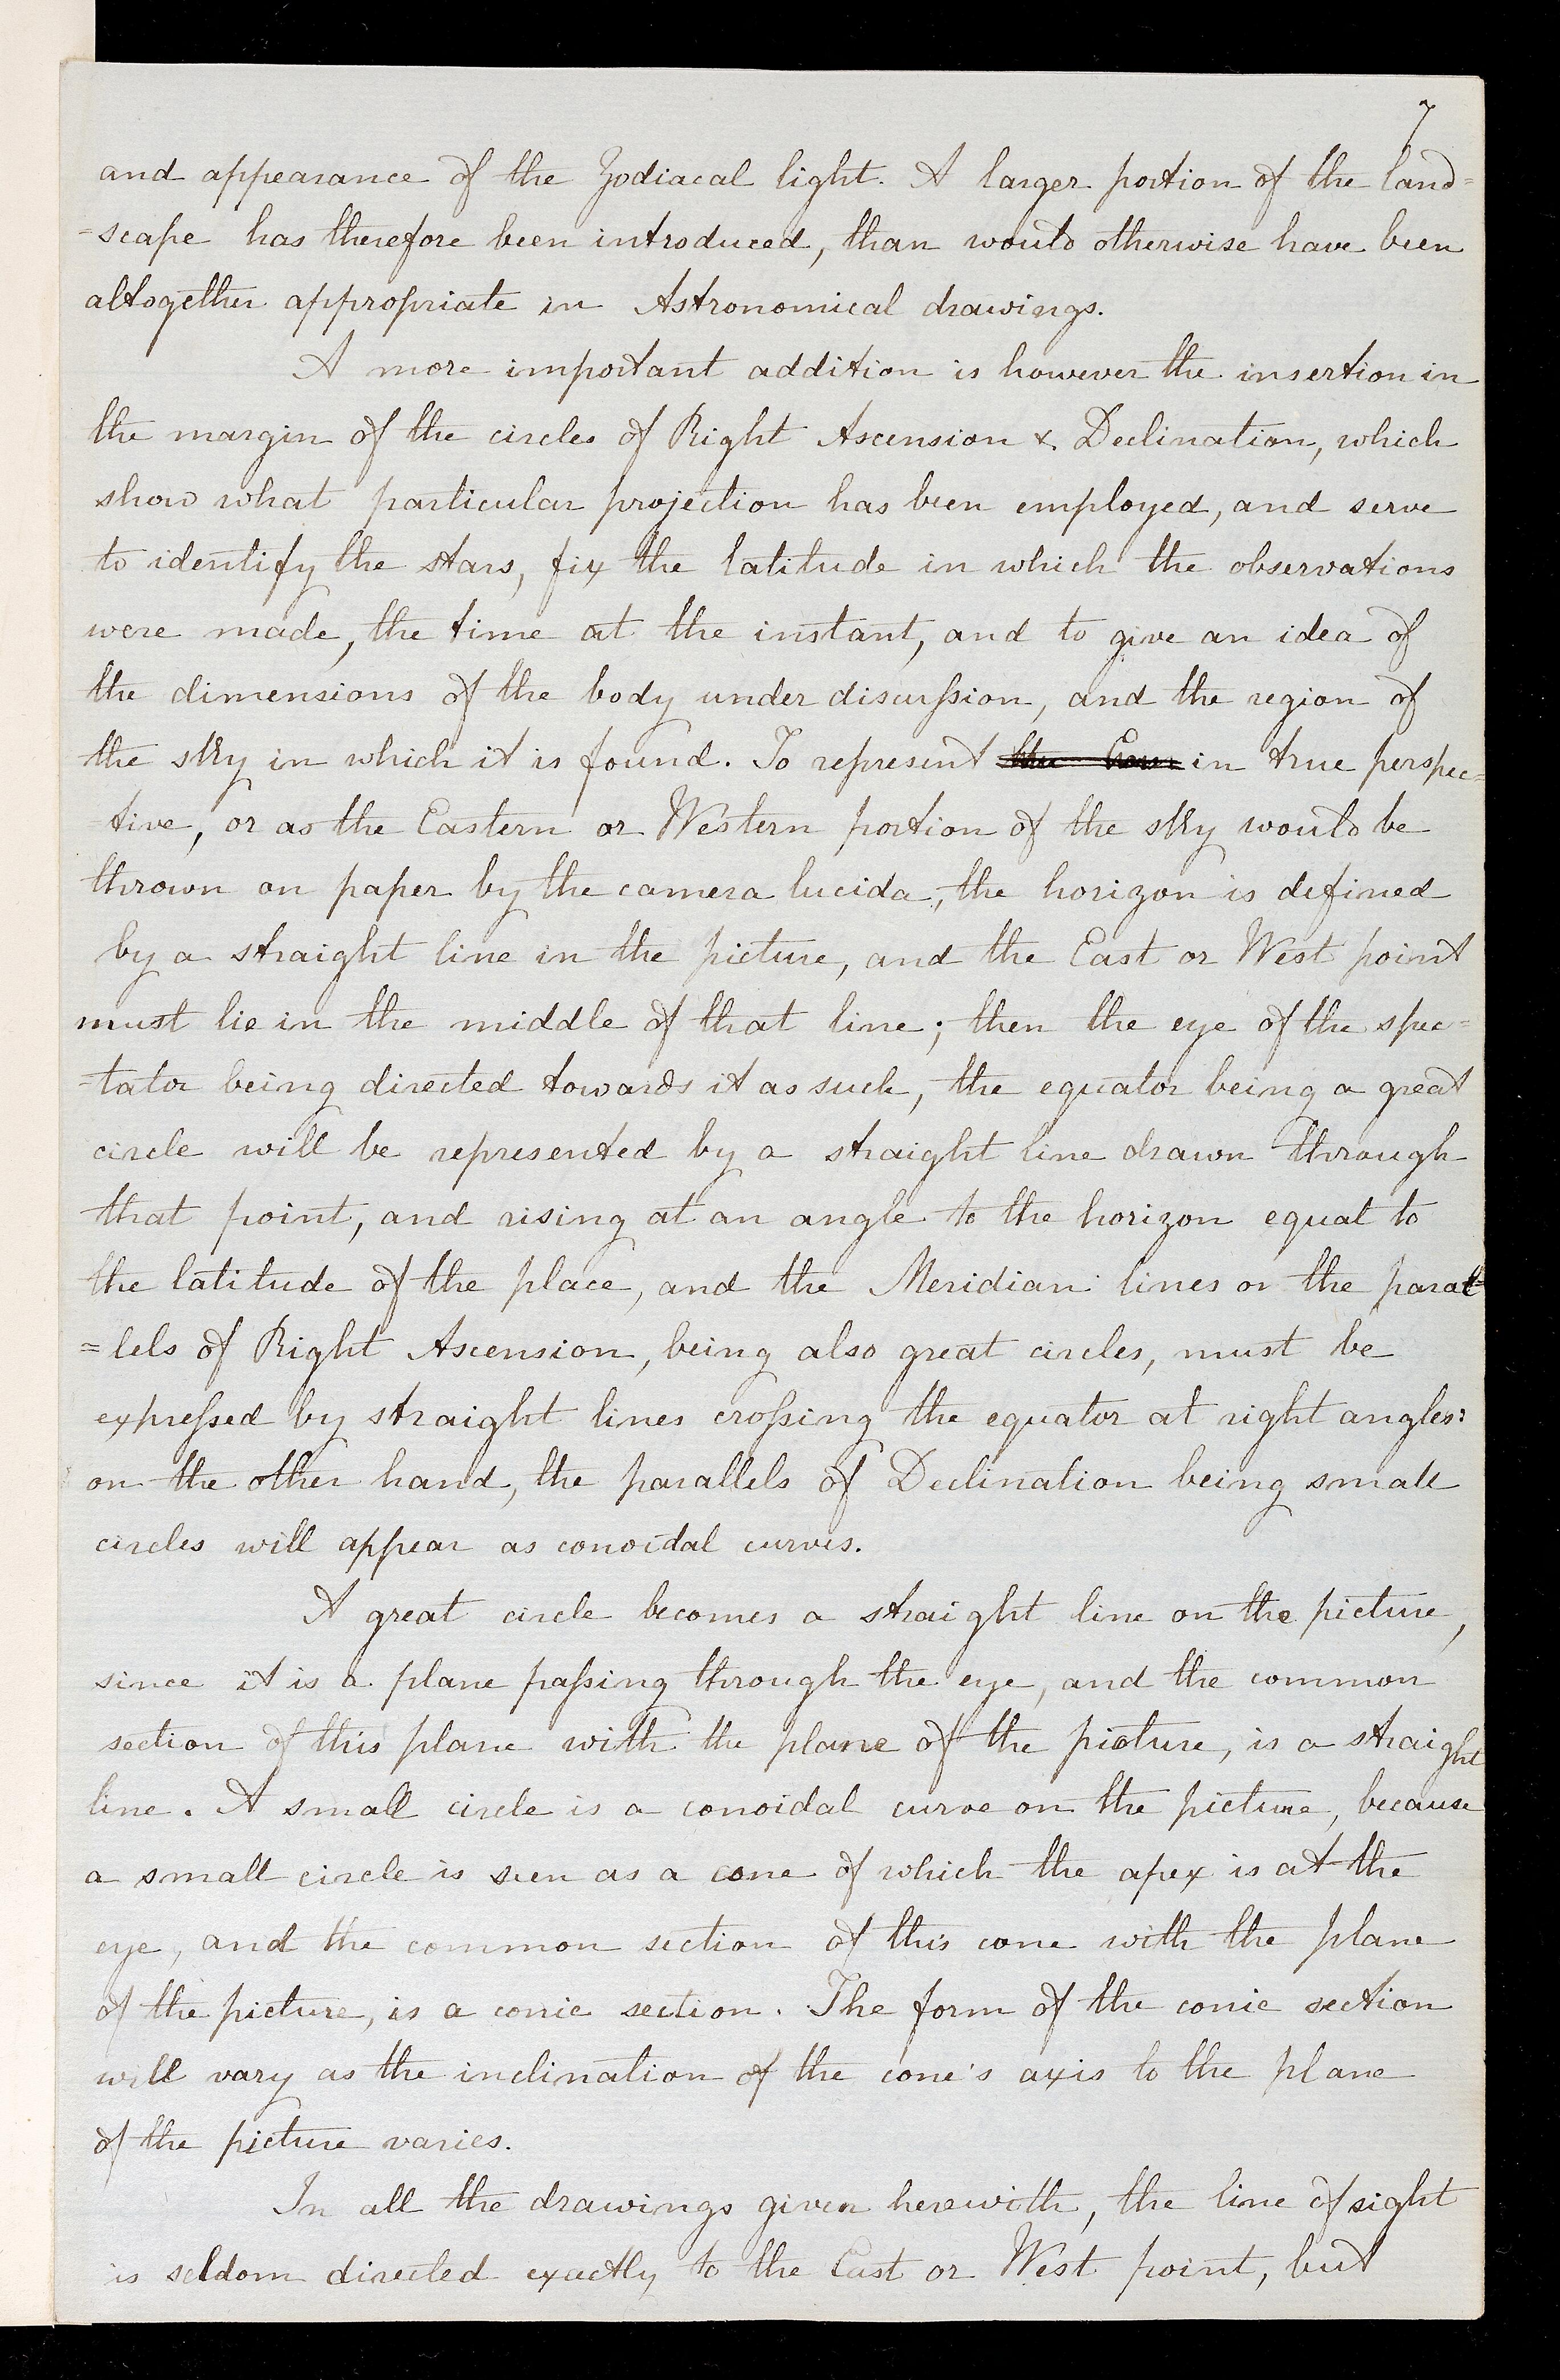 7
and appearance of the Zodiacal light. A larger portion of the land=
=scape has therefore been introduced, than would otherwise have been
altogether appropriate in Astronomical drawings.
A more important addition is however the insertion in
the margin of the circles of Right Ascension & Declination, which
show what particular projection has been employed, and serve
to identify the stars, fix the latitude in which the observations
were made, the time at the instant, and to give an idea of
the dimensions of the body under discußion, and the region of
the sky in which it is found. To represent in true perspec=
tive, or as the Eastern or Western portion of the sky would be
thrown on paper by the camera lucida, the horizon is defined
by a straight line in the picture, and the East or West point
must lie in the middle of that line; then the eye of the spec=
=tator being directed towards it as such, the equator being a great
circle will be represented by a straight line drawn through
that point, and rising at an angle to the horizon equal to
the latitude of the place, and the Meridian lines or the paral=
=lels of Right Ascension, being also great circles, must be
expreſsed by straight lines croſsing the equator at right angles:
on the other hand, the parallels of Declination being small
circles will appear as conoidal curves.
A great circle becomes a straight line on the picture,
since it is a plane paſsing through the eye, and the common
section of this plane with the plane of the picture, is a straight
line. A small circle is a conoidal curve on the picture, because
a small circle is seen as a cone of which the apex is at the
eye, and the common section of this cone with the plane
of the picture, is a conic section. The form of the conic section
will vary as the inclination of the cone's axis to the plane
of the picture varies.
In all the drawings given herewith, the line of sight
is seldom directed exactly to the East or West point, but